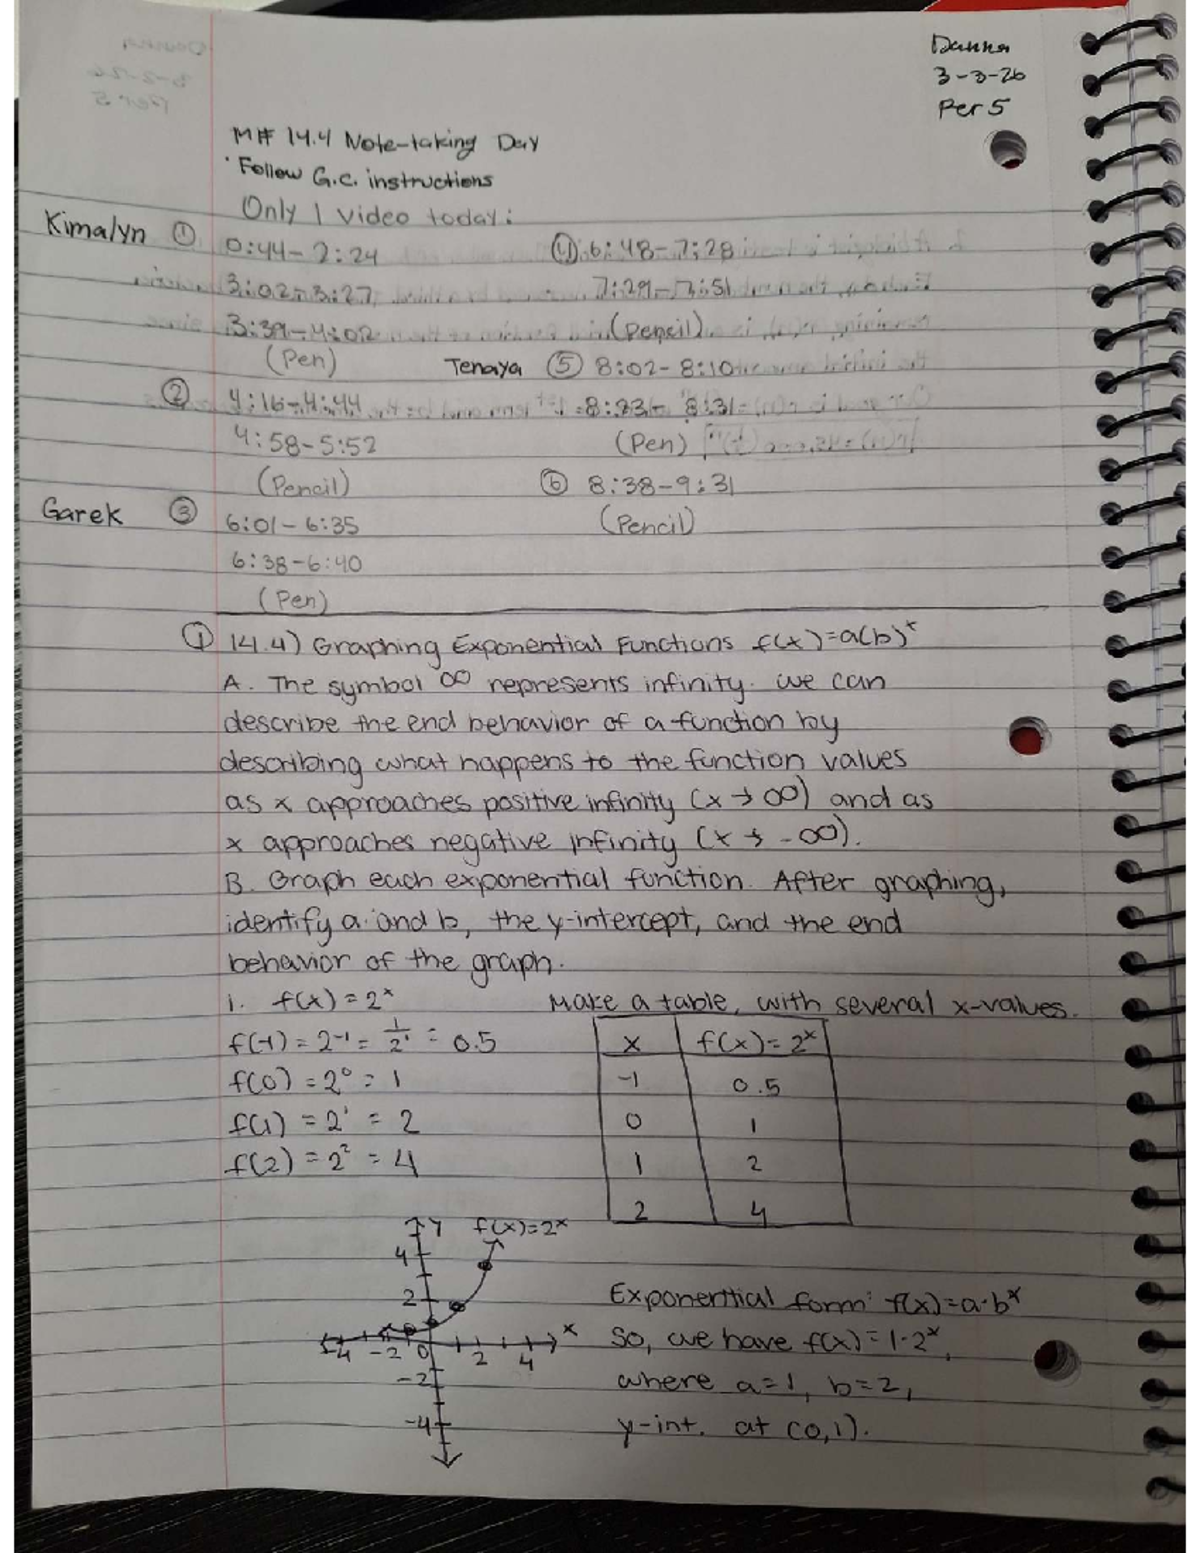 Danna
3-3-26
Per 5
M# 14.4 Note-taking Day
· Follow G.C. instructions
Only 1 video today:
Kimalyn ① 0:44-2:24
3:02-3:27
3:39-4:02
(Pen)
② 4:16-4:44
4:58-5:52
(Pencil)
Garek ③ 6:01-6:35
6:38-6:40
(Pen)
④ 6:48-7:28
7:29-7:51
(Pencil)
Tenaya ⑤ 8:02-8:10
8:23-8:31
(Pen)
⑥ 8:38-9:31
(Pencil)
① 14.4) Graphing Exponential Functions f(x)=a(b)ˣ
A. The symbol ∞ represents infinity. We can
describe the end behavior of a function by
describing what happens to the function values
as x approaches positive infinity (x→∞) and as
x approaches negative infinity (x→-∞).
B. Graph each exponential function. After graphing,
identify a and b, the y-intercept, and the end
behavior of the graph.
1. f(x)=2ˣ
f(-1)=2⁻¹= 1/2¹ = 0.5
f(0)=2⁰=1
f(1)=2¹=2
f(2)=2²=4
Make a table, with several x-values.
x f(x)=2ˣ
-1 0.5
0 1
1 2
2 4
y f(x)=2ˣ
4
2
-4 -2 0 2 4 x
-2
-4
Exponential form: f(x)=a·bˣ
So, we have f(x)=1·2ˣ,
where a=1, b=2,
y-int. at (0,1).